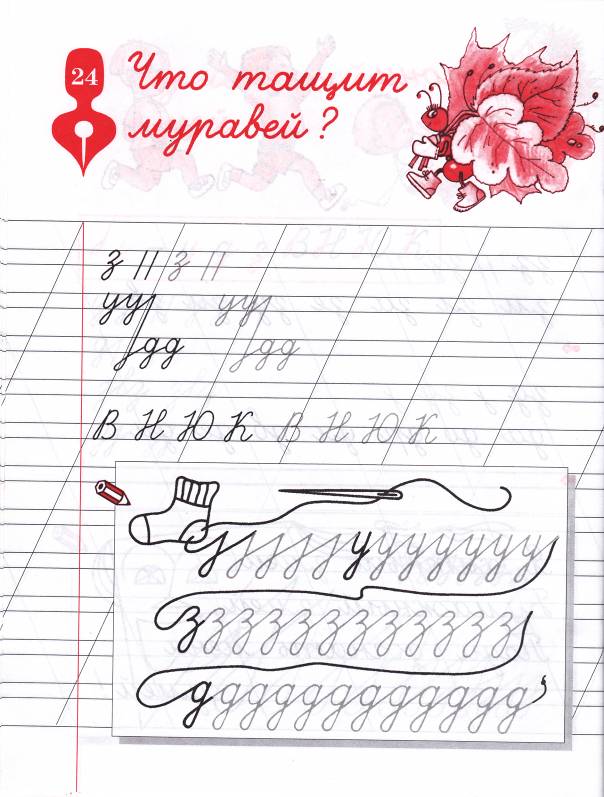 24
Что тащит
муравей?
з П з П
уу уу
дд дд
В Н Ю К В Н Ю К
у у у у у у у у
з з з з з з з з з з з з з
д д д д д д д д д д д д